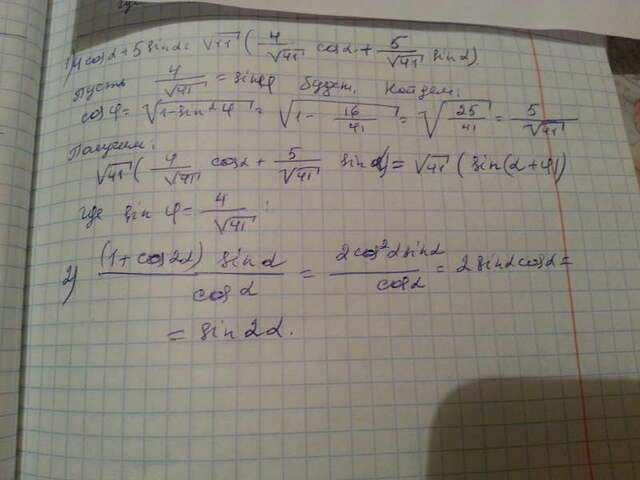 1) 4cosα + 5sinα = √41 (4/√41 cosα + 5/√41 sinα)
Пусть 4/√41 = sinφ будет. Найдем:
cosφ = √(1-sin²φ) = √(1 - 16/41) = √(25/41) = 5/√41
Получим:
√41 (4/√41 cosα + 5/√41 sinα) = √41 (sin(α+φ))
где sin φ = 4/√41
2) (1+cos2α) sinα / cosα = 2cos²α sinα / cosα = 2sinα cosα =
= sin2α.